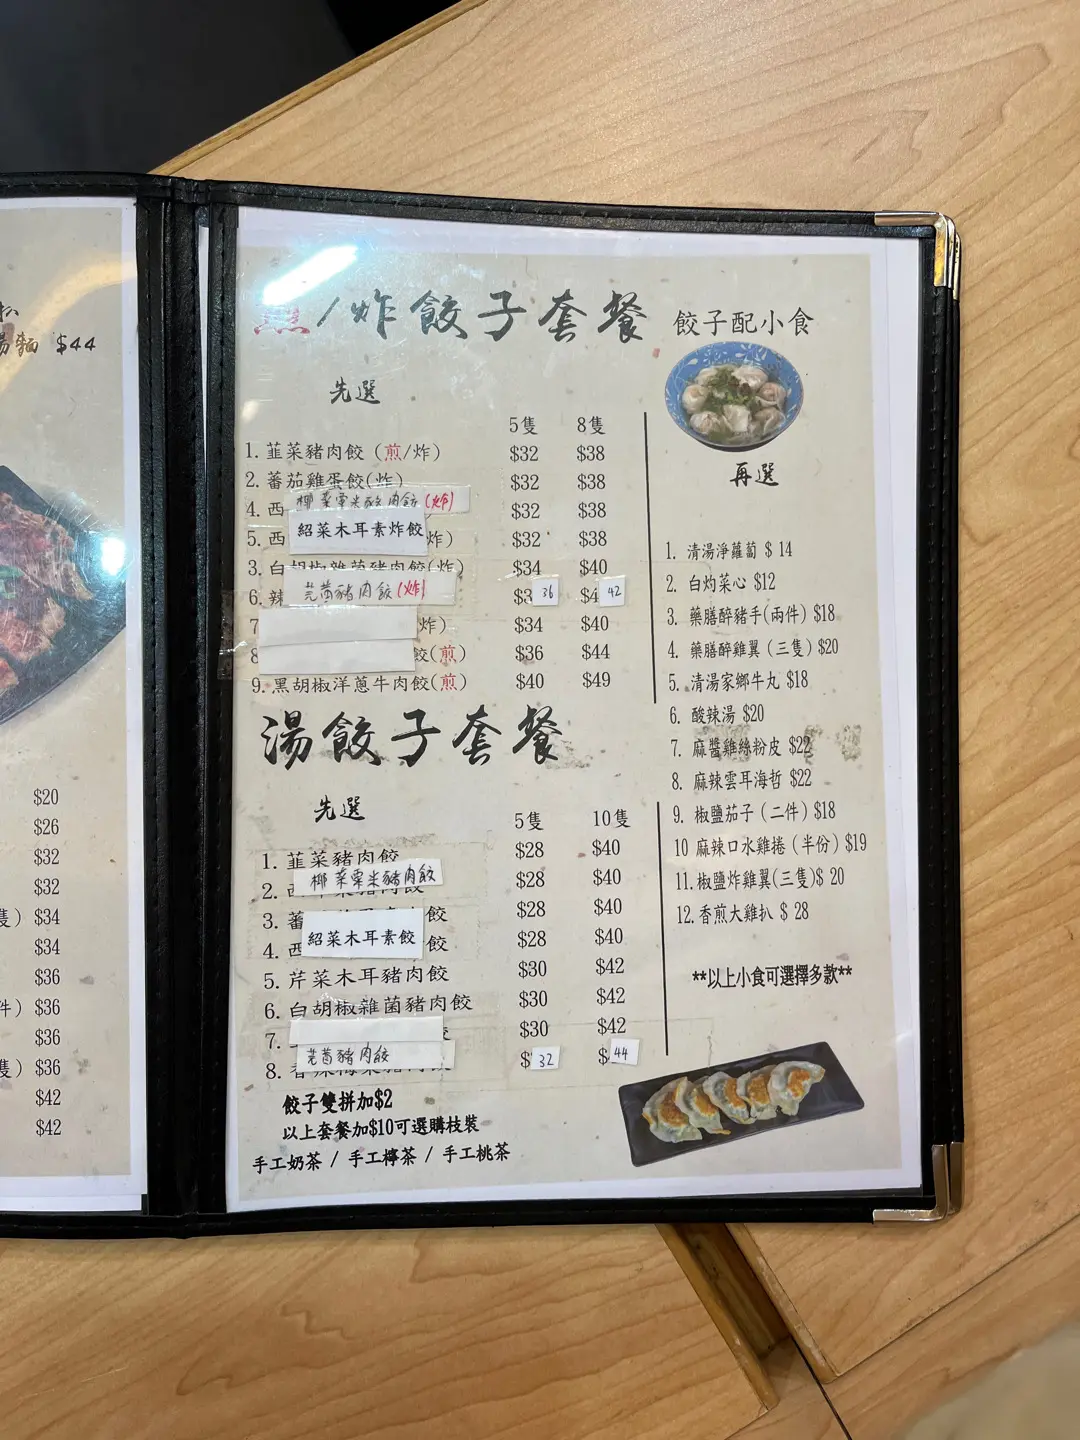 湯麵 $44
$20
$26
$32
$32
隻） $34
$34
$36
件） $36
$36
隻） $36
$42
$42
煎/炸餃子套餐 餃子配小食
先選
5隻 8隻
1. 韮菜豬肉餃（煎/炸） $32 $38
2. 蕃茄雞蛋餃(炸) $32 $38
4. 西 椰菜粟米豬肉餃(炸) $32 $38
5. 西 紹菜木耳素炸餃 炸） $32 $38
3. 白胡椒雜菌豬肉餃(炸) $34 $40
6. 辣 芫茜豬肉餃(炸) $3 36 $4 42
7 炸） $34 $40
8 餃(煎) $36 $44
9. 黑胡椒洋蔥牛肉餃(煎) $40 $49
湯餃子套餐
先選
5隻 10隻
1. 韮菜豬肉餃 $28 $40
2. 椰菜粟米豬肉餃 $28 $40
3. 蕃 餃 $28 $40
4. 西 紹菜木耳素餃 餃 $28 $40
5. 芹菜木耳豬肉餃 $30 $42
6. 白胡椒雜菌豬肉餃 $30 $42
7. $30 $42
8. 芫茜豬肉餃 $ 32 $ 44
餃子雙拼加$2
以上套餐加$10可選購枝裝
手工奶茶 / 手工檸茶 / 手工桃茶
再選
1. 清湯淨蘿蔔 $ 14
2. 白灼菜心 $12
3. 藥膳醉豬手(兩件) $18
4. 藥膳醉雞翼（三隻）$20
5. 清湯家鄉牛丸 $18
6. 酸辣湯 $20
7. 麻醬雞絲粉皮 $22
8. 麻辣雲耳海哲 $22
9. 椒鹽茄子（二件）$18
10 麻辣口水雞捲（半份）$19
11. 椒鹽炸雞翼(三隻)$ 20
12. 香煎大雞扒 $ 28
**以上小食可選擇多款**